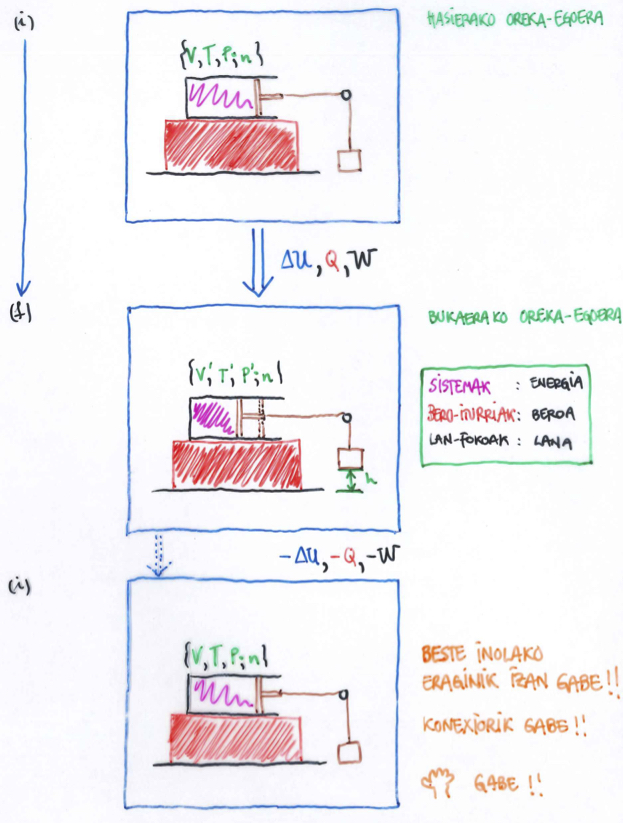 (i)
HASIERAKO OREKA-EGOERA
{V,T,P;n}
ΔU, Q, W
(f)
BUKAERAKO OREKA-EGOERA
{V',T',P';n}
SISTEMAK : ENERGIA
BERO-ITURRIAK: BEROA
LAN-FOKOAK : LANA
h
-ΔU,-Q,-W
(i)
{V,T,P;n}
BESTE INOLAKO
ERAGINIK IZAN GABE!!
KONEXIORIK GABE!!
GABE!!